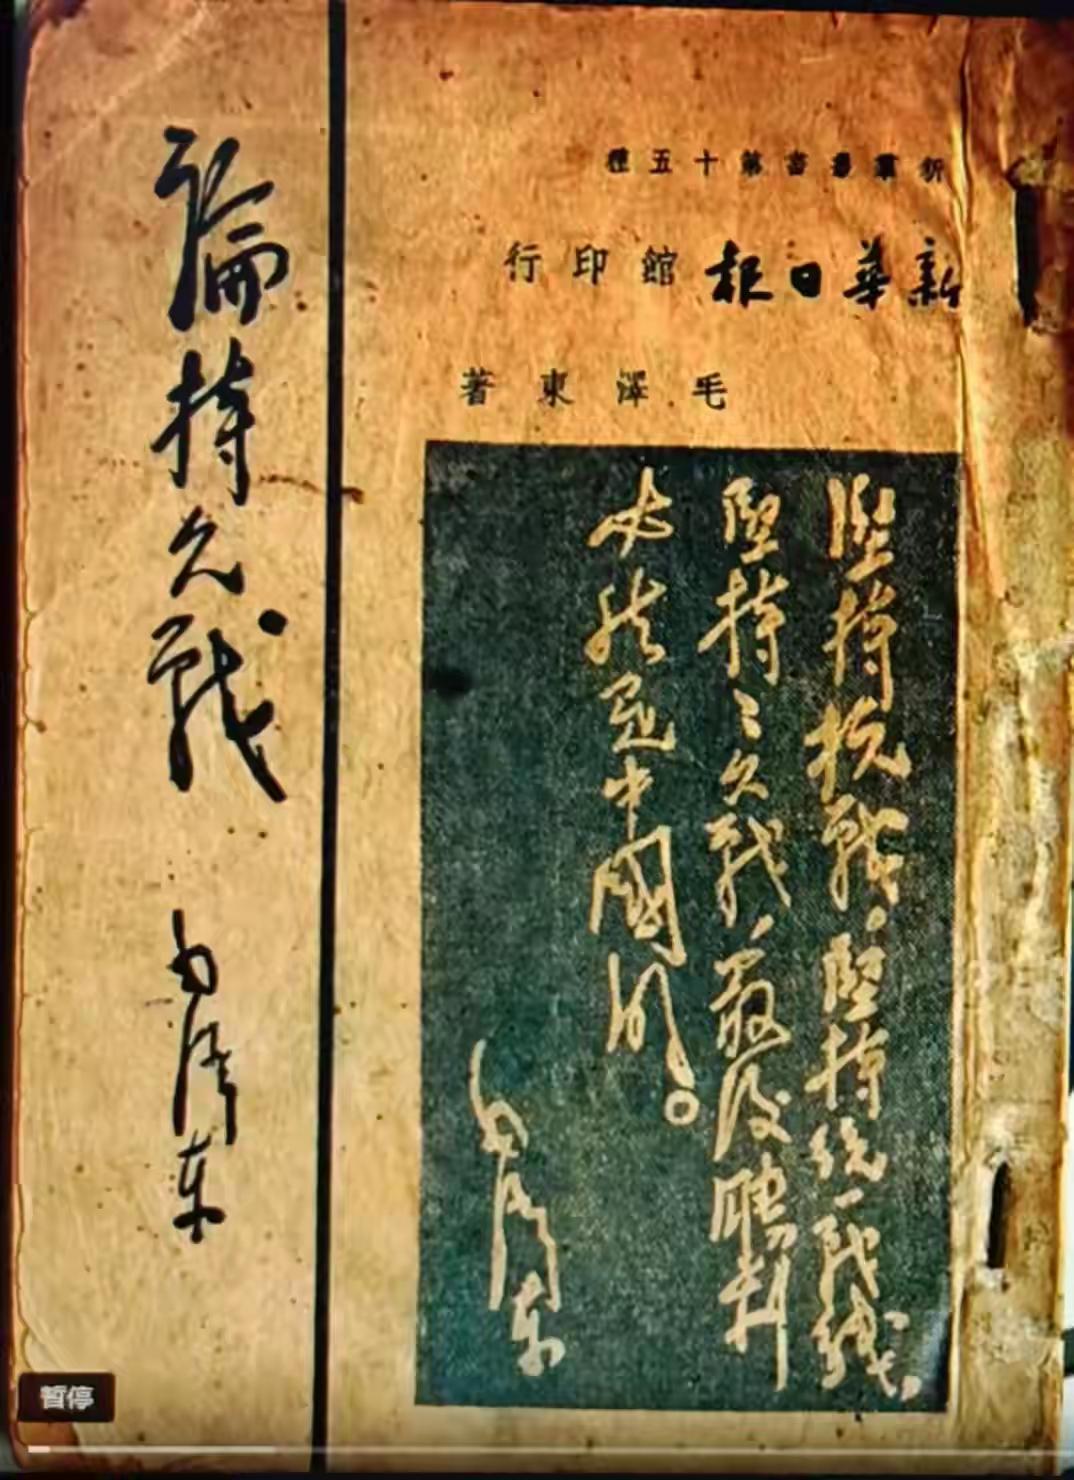 新羣叢書第十五種
新華日報館印行
毛澤東著
堅持抗戰,堅持統一戰線,
堅持〻久戰,最後勝利
必然是中國的。
毛泽东
論持久戰
毛泽东
暂停